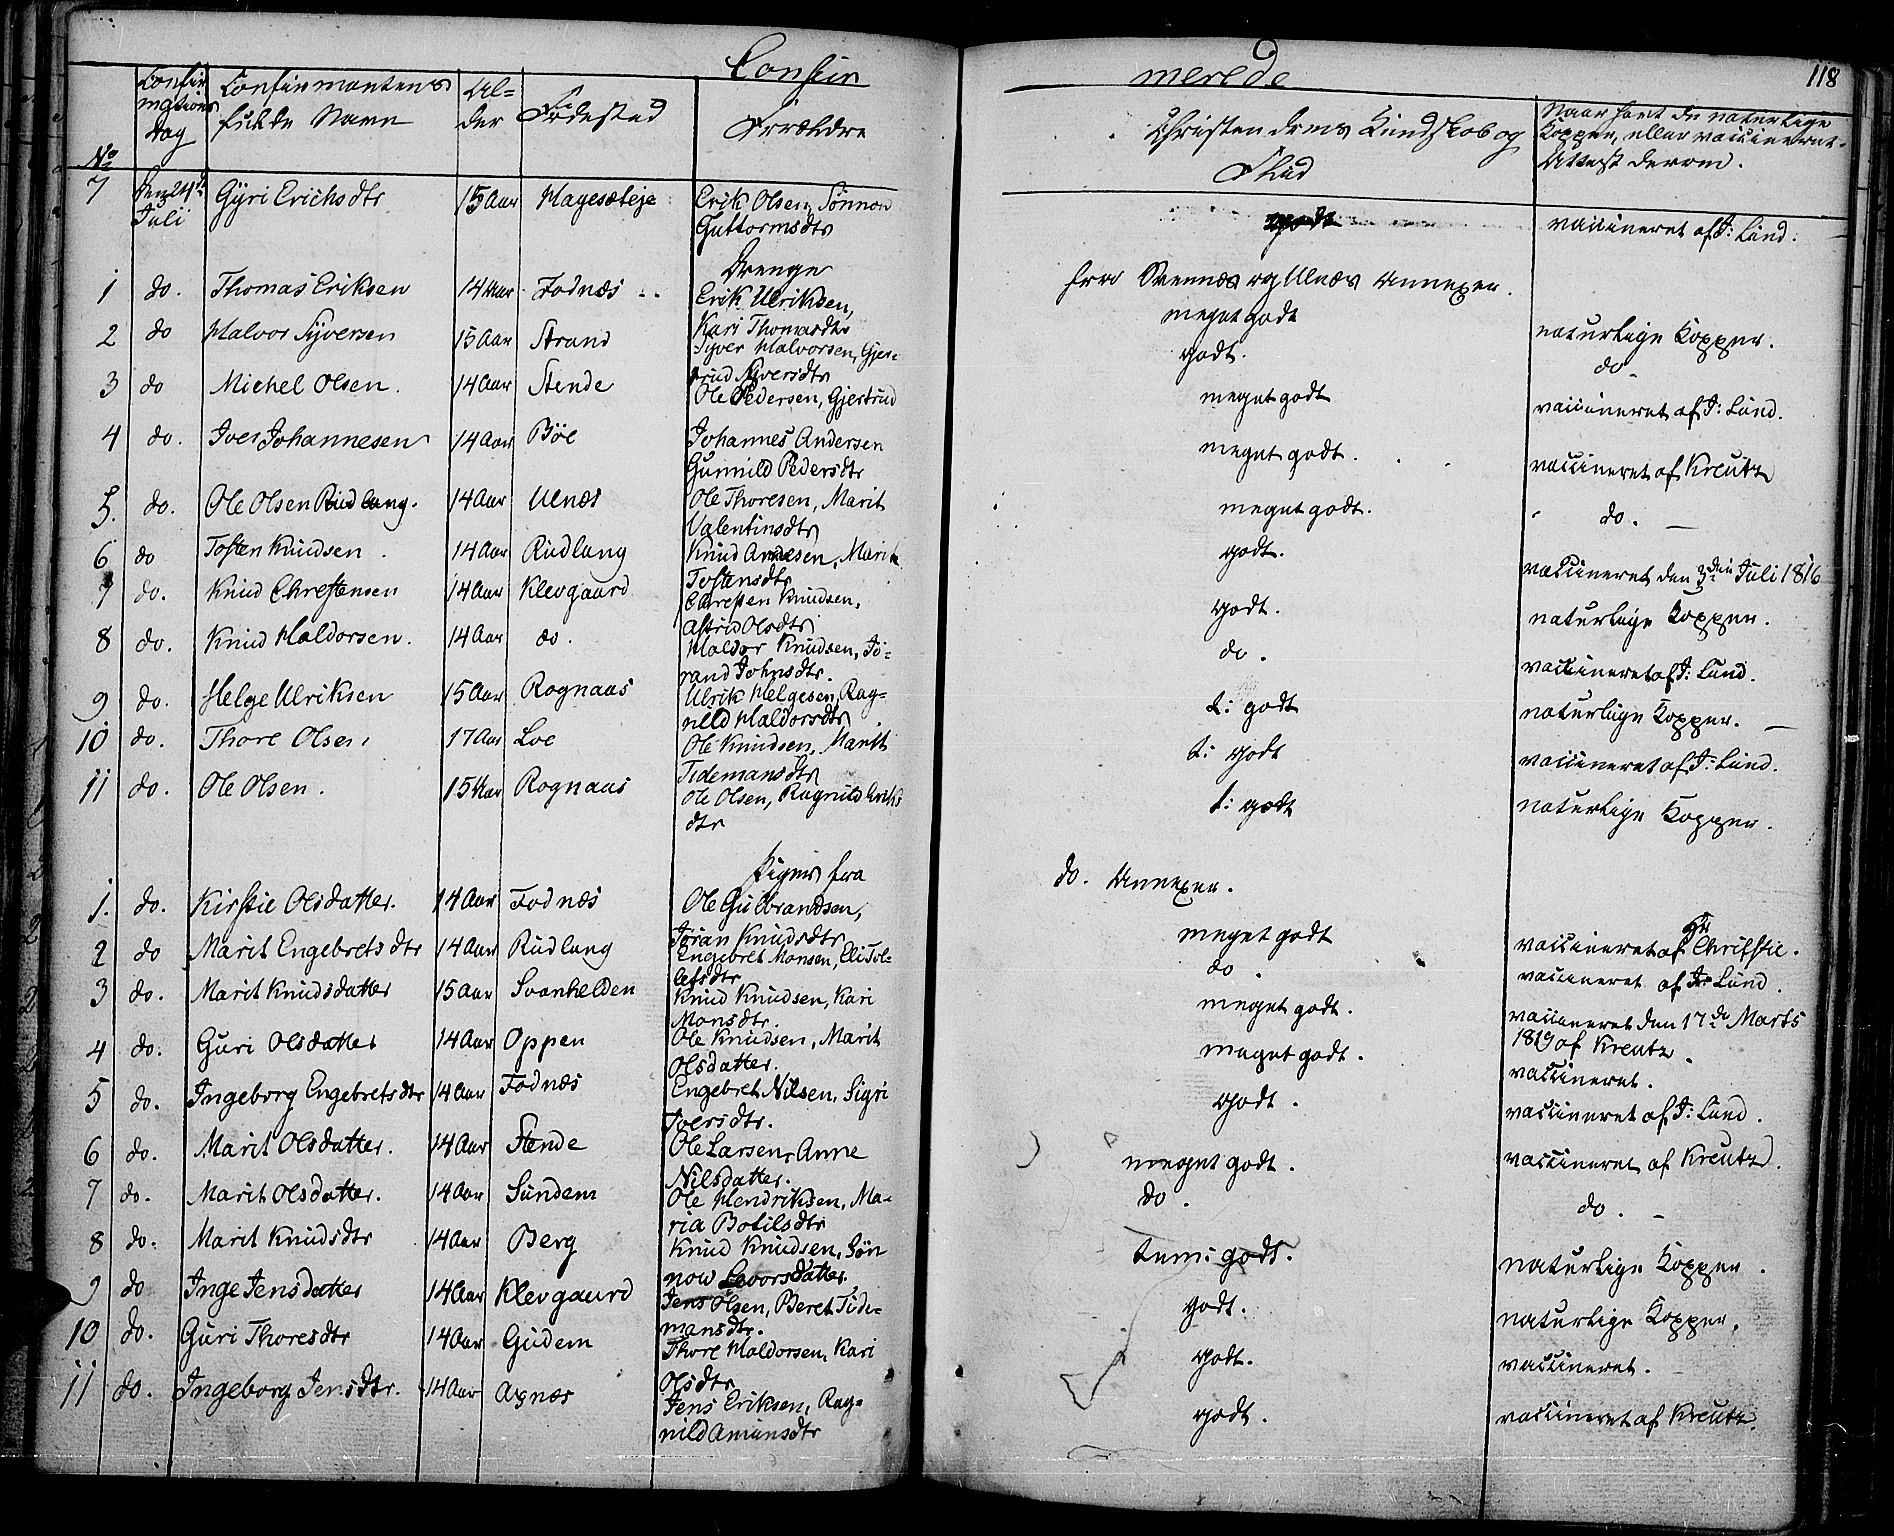 Confir merede 118
No Confirmations Dag Confirmantens fulde Navn Alder Fødested Forældre Christendoms Kundskab og Flid Naar havt de naturlige Kopper, eller vaccineret. Attest derom.
7 Den 24de Juli Gÿri Erichsdtr 15 Aar Hagesæteje Erik Olsen, Sønnou godt vaccineret af J: Lund.
Guttormsdtr
Drenge fra Svennes og Ulnæs Annexer.
1 do. Thomas Eriksen 14 Aar Fodnæs Erik Ulriksen, meget godt naturlige Kopper.
Kari Thomasdtr
2 do Halvor Syversen 15 Aar Strand Syver Halvorsen, Gjer= godt. do
trud Syversdtr
3 do Michel Olsen. 14 Aar Stende Ole Pedersen, Gjertrud meget godt vaccineret af J: Lund.
4 do. Iver Johannesen 14 Aar Böe Johannes Andersen meget godt. vaccineret af Kreutz
Gunnild Pedersdtr
5. do. Ole Olsen Rudlang. 14 Aar Ulnæs Ole Thoresen, Marit meget godt. do. —
Valentinsdtr
6 do Tosten Knudsen. 14 Aar Rudlang Knud Andresen, Marit godt. vaccineret den 3die Juli 1816
Tostensdtr
7 do. Knud Chrestensen 14 Aar Klevgaard Chresten Knudsen, godt. naturlige Kopper.
Astrid Olsdtr
8 do. Knud Haldorsen. 14 Aar do. Haldor Knudsen, Jö= do. vaccineret af J: Lund.
rand Johnsdtr.
9 do. Helge Ulriksen 15 Aar Rognaas Ulrik Helgesen, Rag= t: godt naturlige Kopper. —
nild Haldorsdtr
10 do. Thore Olsen 17 Aar Loe Ole Knudsen, Marith t: godt vaccineret af J: Lund.
Tidemansdtr
11 do. Ole Olsen. 15 Aar Rognaas Ole Olsen, Ragnild Eriks t: godt naturlige Kopper.
dtr
Piger fra do. Annexer.
1. do. Kirstie Olsdatter. 14 Aar Fodnæs Ole Gulbrandsen, meget godt vaccineret af Hr Christie.
Jöran Knudsdtr
2 do Marit Engebretsdtr 14 Aar Rudlang Engebret Monsen, Eli Tol= do. vaccineret af J: Lund.
lefsdtr
3 do. Marit Knudsdatter 15 Aar Svanhelden Knud Knudsen, Kari meget godt. vaccineret den 17de Marts
Monsdtr. 1819 af Kreutz.
4 do. Guri Olsdatter 14 Aar Oppen Ole Knudsen, Marit meget godt. vaccineret.
Olsdatter.
5 do. Ingeborg Engebretsdtr 14 Aar Fodnæs Engebret Nilsen, Sigri godt. vaccineret af J: Lund.
Iversdtr.
6 do. Marit Olsdatter. 14 Aar Stende Ole Larsen, Anne meget godt. vaccineret af Kreutz.
Nilsdatter.
7 do. Marit Olsdatter. 14 Aar Sundem Ole Hendriksen, Ma= do. do. —
ria Botilsdtr
8 do. Marit Knudsdtr 14 Aar Berg Knud Knudsen, Sön tem: godt. naturlige Kopper.
now Levorsdatter
9 do Inge Jensdatter 14 Aar Klevgaard Jens Olsen, Beret Tide= godt. naturlige Kopper.
mansdtr.
10 do. Guri Thoresdtr 14 Aar Gudem Thore Haldorsen, Kari godt. vaccineret.
Olsdtr
11 do. Ingeborg Jensdtr. 14 Aar Axnæs Jens Eriksen, Rag= godt. vaccineret af Kreutz.
nild Amunsdtr